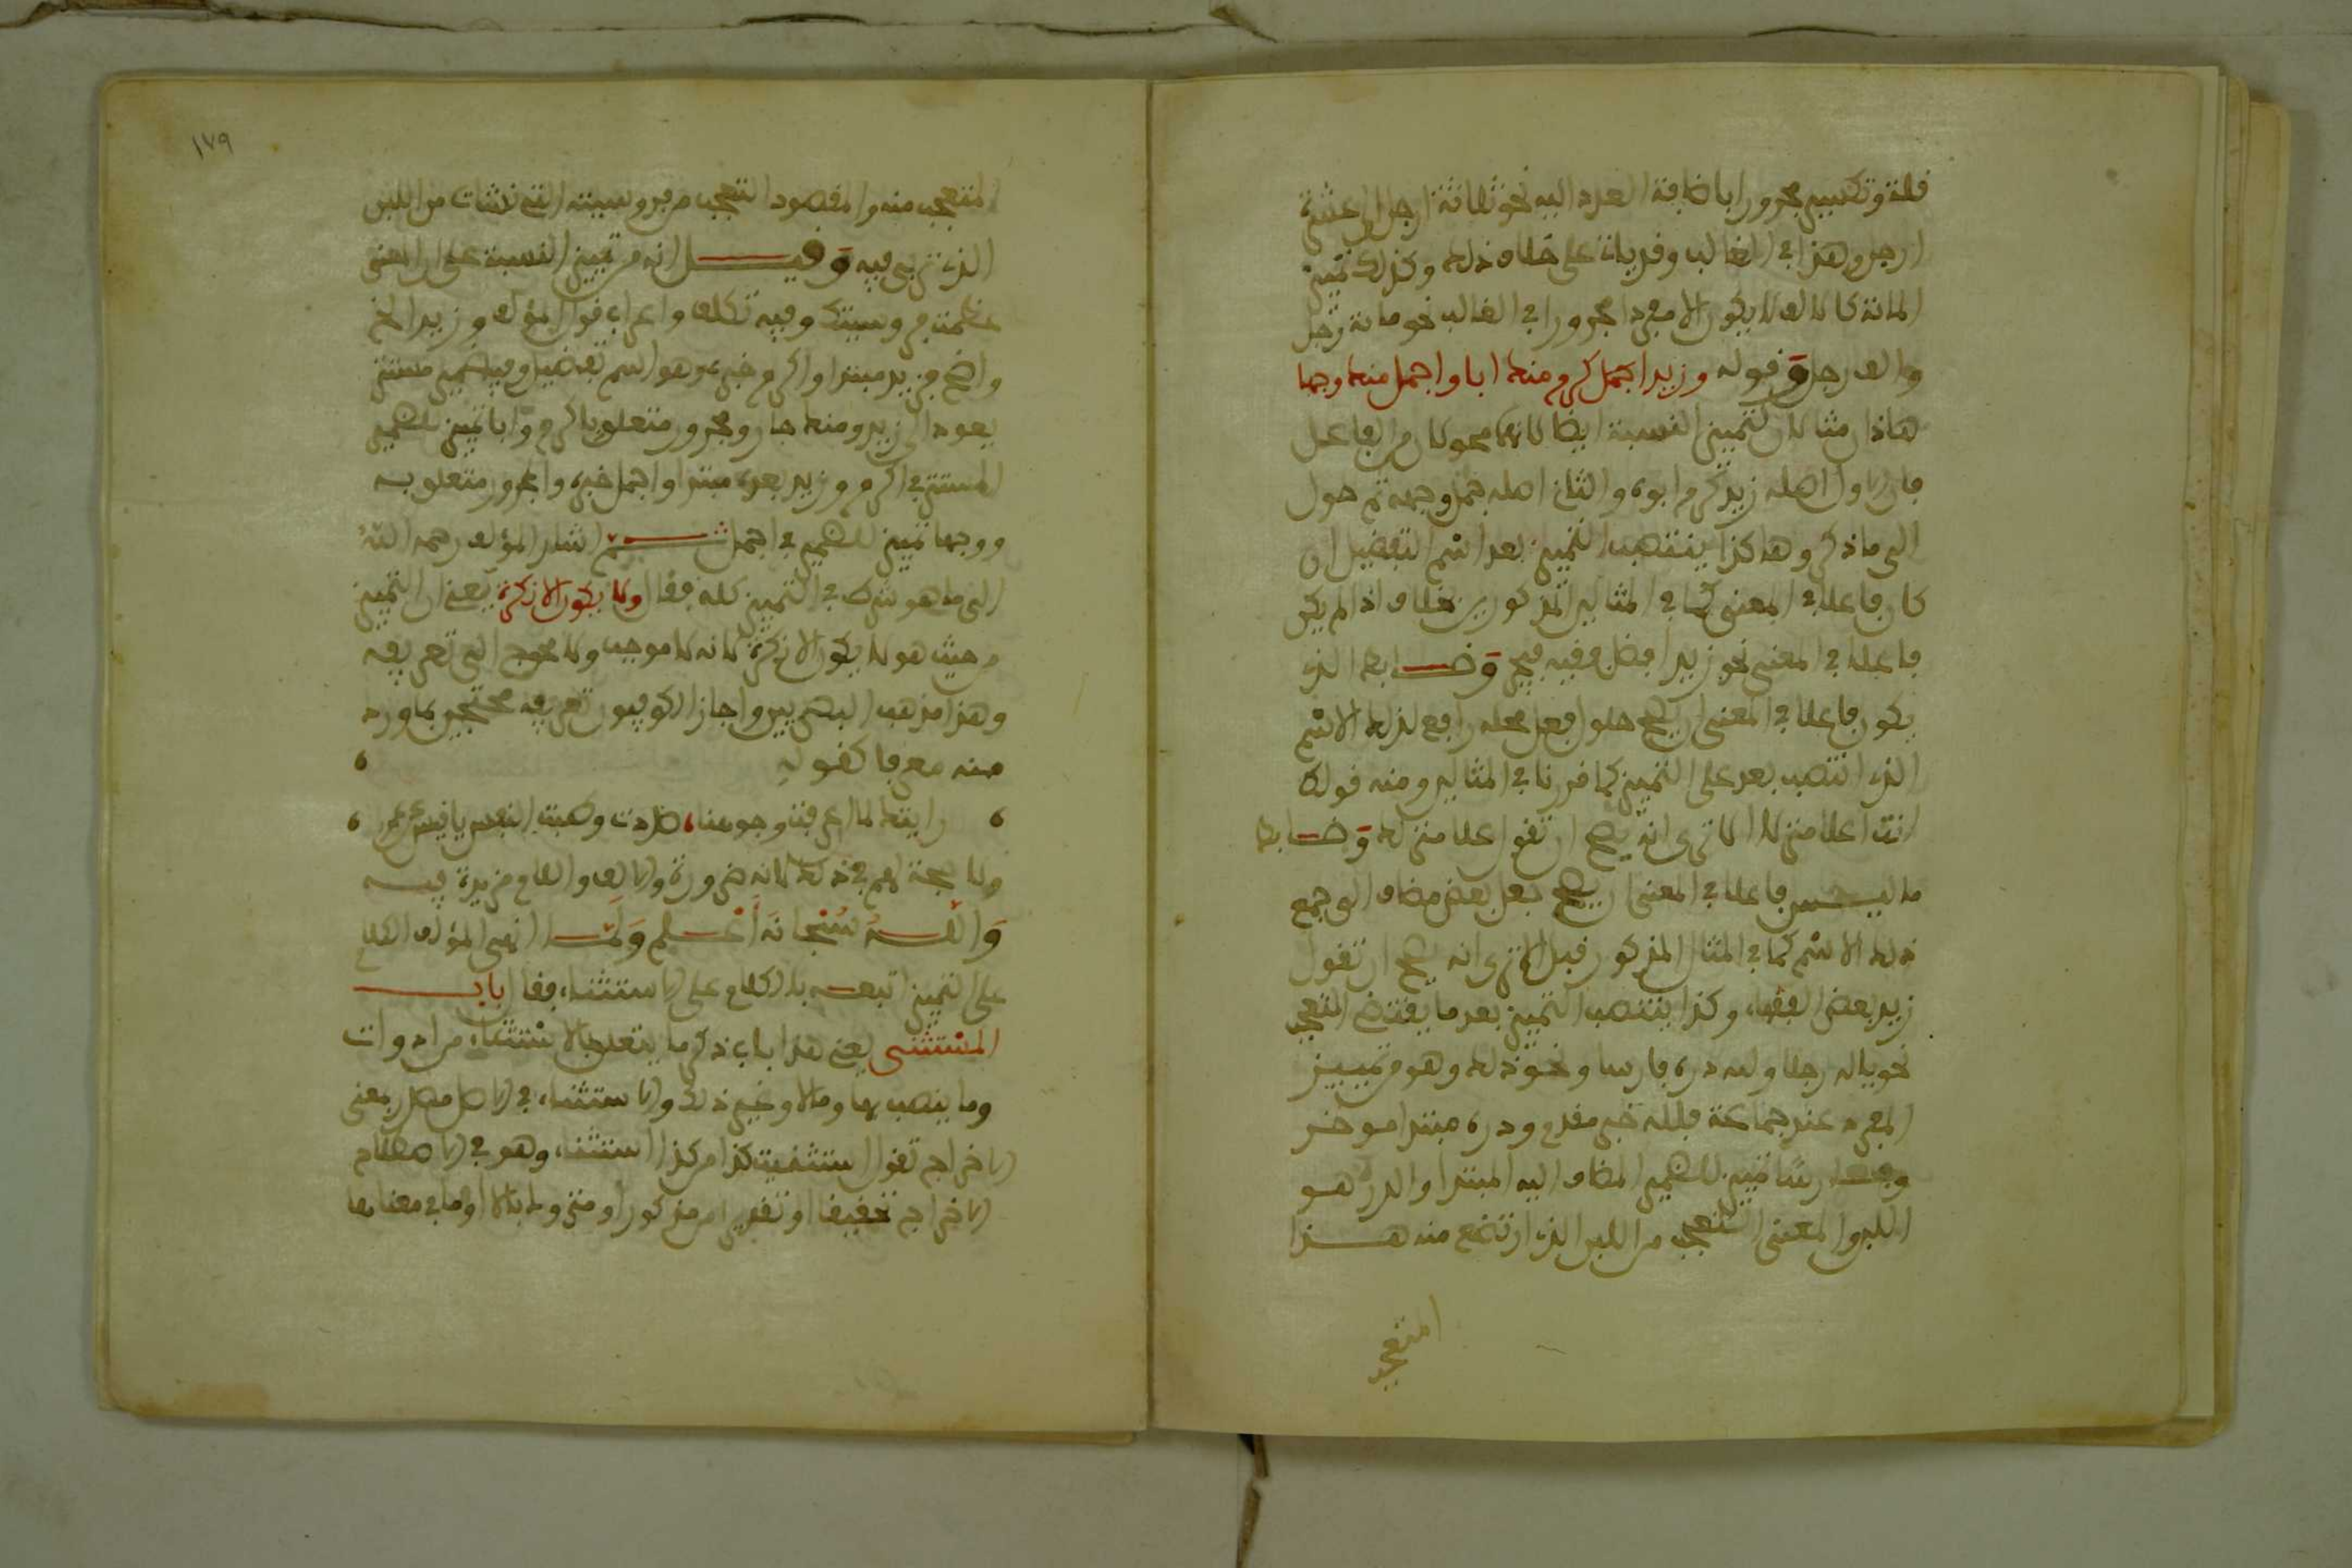 قلة وتكسير مجرورا باضافة العدد اليه نحو ثلاثة ارجل الى عشرة
ارجل وهذا في الغالب وقد ياتي على خلاف ذلك وكذلك تمييز
المائة كالالف لا يكون الا مفردا مجرورا في الغالب نحو مائة رجل
والف رجل وقوله وزيد اكرم منك ابا واجمل منك وجها
هاذان مثالان لتمييز النسبة ايضا لانهما محولان من الفاعل
فان الاول اصله زيد كرم ابوه والثاني اصله جمل وجهه ثم حول
الى ما ذكر وهاكذا ينتصب التمييز بعد اسم التفضيل ان
كان فاعلا في المعنى كما في المثالين المذكورين بخلاف اذا لم يكن
فاعلا في المعنى نحو زيد افضل فقيه وضابط الذي
يكون فاعلا في المعنى ان يصح حلول فعل محله رافع لذلك الاسم
الذي انتصب بعد على التمييز كما قررنا في المثالين ومنه قولك
انت اعلا منزلا الا ترى انه يصح ان تقول علا منزلك وضابط
ما ليس فاعلا في المعنى ان يصح جعل بعض مضاف الى جمع
ذلك الاسم كما في المثال المذكور قبل الا ترى انه يصح ان تقول
زيد بعض الفقهاء وكذا ينتصب التمييز بعد ما يقتضي التعجب
نحو يا له رجلا ولله دره فارسا ونحو ذلك وهو من تمييز
المفرد عند جماعة فلله خبر مقدم ودره مبتدا موخر
وفارسا تمييز للضمير المضاف اليه المبتدا والدر هو
اللبن والمعنى التعجب من اللبن الذي ارتضع منه هذا
المتعجب
١٧٩
المتعجب منه والمقصود التعجب من فروسيته التي نشات من اللبن
الذي تربى فيه وقيل انه من تمييز النسبة على ان المعنى
عظمت فروسيتك وفيه تكلف واعراب قول المؤلف وزيد الخ
واضح فزيد مبتدا واكرم خبره وهو اسم تفضيل وفيه ضمير مستتر
يعود الى زيد ومنك جار ومجرور متعلق باكرم وابا تمييز للضمير
المستتر في اكرم وزيد بعده مبتدا واجمل خبره والمجرور متعلق به
ووجها تمييز للضمير في اجمل ثم اشار المؤلف رحمه الله
الى ما هو شرط في التمييز كله فقال ولا يكون الا نكرة يعني ان التمييز
من حيث هو لا يكون الا نكرة لانه لا موجب ولا محوج الى تعريفه
وهذا مذهب البصريين واجاز الكوفيون تعريفه محتجين بما ورد
منه معرفا كقوله
رايتك لما ان عرفت وجوهنا، صددت وطبت النفس يا قيس عن عمرو
ولا حجة لهم في ذلك لانه ضرورة والالف واللام مزيدة فيه
والله سبحانه اعلم ولما انهى المؤلف الكلام
على التمييز اتبعه بالكلام على الاستثناء فقال باب
المستثنى يعني هذا باب ذكر ما يتعلق بالاستثناء من ادوات
وما ينصب بها وما لا وغير ذلك والاستثناء في الاصل مصدر بمعنى
الاخراج تقول استثنيت كذا من كذا استثناء وهو في الاصطلاح
الاخراج تحقيقا او تقديرا من مذكور او متروك بالا او ما في معناها